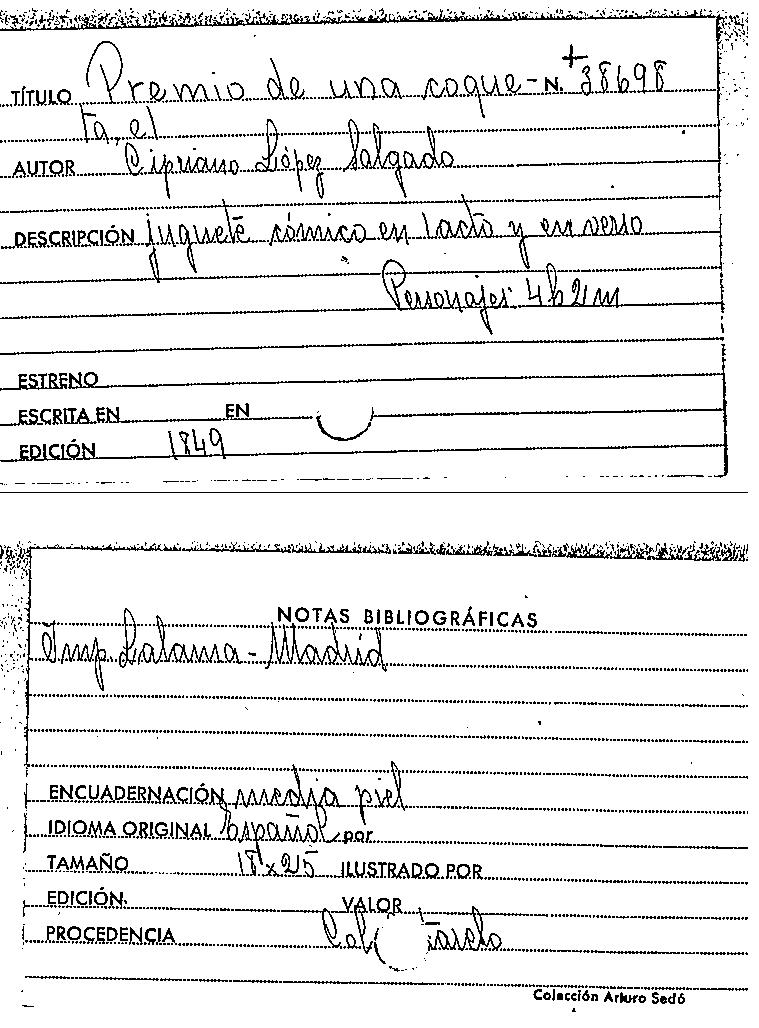 TÍTULO Premio de una coque- N. + 38698
ta, el
AUTOR Cipriano López Salgado
DESCRIPCIÓN juguete cómico en 1 acto y en verso
Personajes: 4h 2m
ESTRENO
ESCRITA EN EN
EDICIÓN 1849
NOTAS BIBLIOGRÁFICAS
Imp Lalama - Madrid
ENCUADERNACIÓN media piel
IDIOMA ORIGINAL español por
TAMAÑO 18 x 25 ILUSTRADO POR
EDICIÓN. VALOR
PROCEDENCIA Col
Colección Arturo Sedó